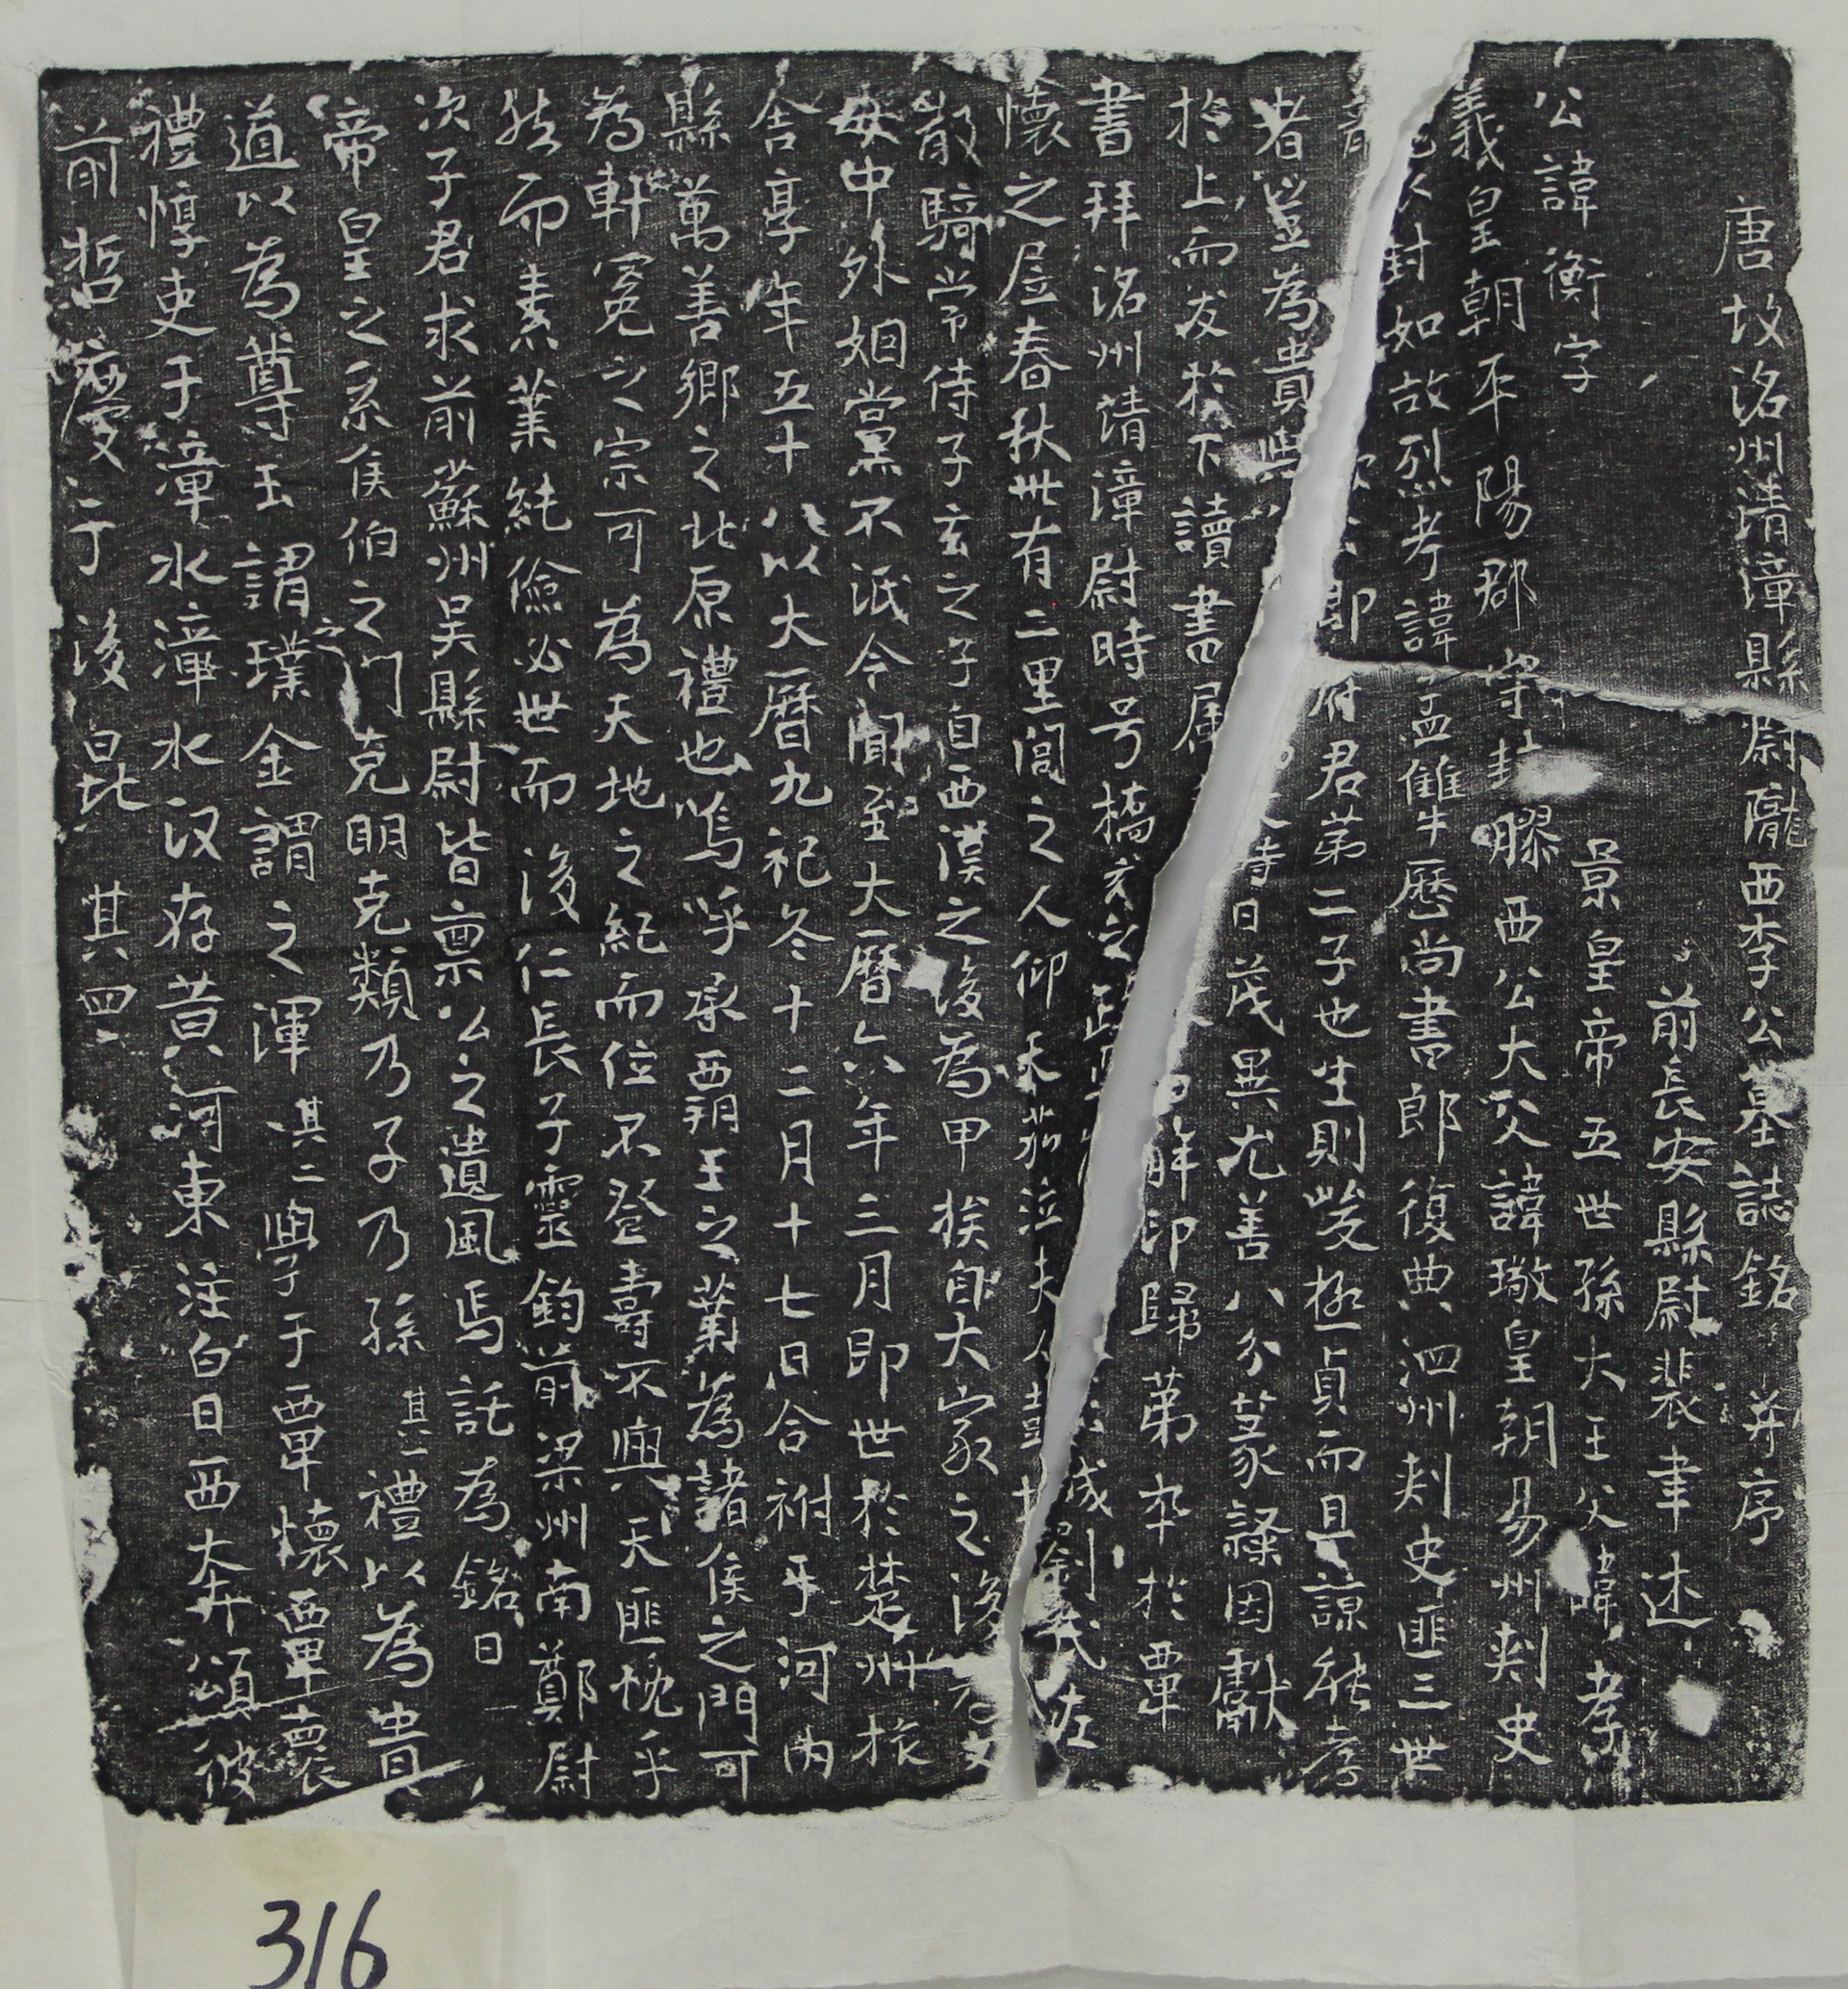 唐故洺州清漳縣尉隴西李公墓誌銘 并序
前長安縣尉裴聿述
公諱衡字 景皇帝五世孫大王父諱孝
義皇朝平陽郡守封膠西公大父諱璥皇朝易州刺史
封如故烈考諱孟犨歷尚書郎復典泗州刺史匪三世
府君第二子也生則岐嶷貞而且諒能孝
者豈為貴與 時日茂異尤善八分篆隸因獻
於上而友於下讀書屬 解印歸第卒於覃
書拜洺州清漳尉時号 之 成劉氏左
懷之屋春秋卌有二里閭之人仰天悲泣夫人
散騎常侍子玄之子自西漢之後為甲族自大家之後
母中外姻黨不泯今聞至大曆六年三月即世於楚州旅
舍享年五十八以大曆九祀冬十二月十七日合祔乎河內
縣萬善鄉之北原禮也嗚呼承兩朝王之業為諸侯之門可
為軒冕之宗可為天地之紀而位不登壽不興天匪忱乎
然而素業純儉必世而後仁長子靈鈞前梁州南鄭尉
次子君求前蘇州吳縣尉皆稟公之遺風焉託為銘曰
帝皇之系侯伯之門克明克類乃子乃孫 其一 禮以為貴
道以為尊玉謂之璞金謂之渾 其二 學于覃懷覃懷
禮惇吏于漳水漳水汉存黃河東注白日西奔頌彼
前哲慶于後昆 其四
316